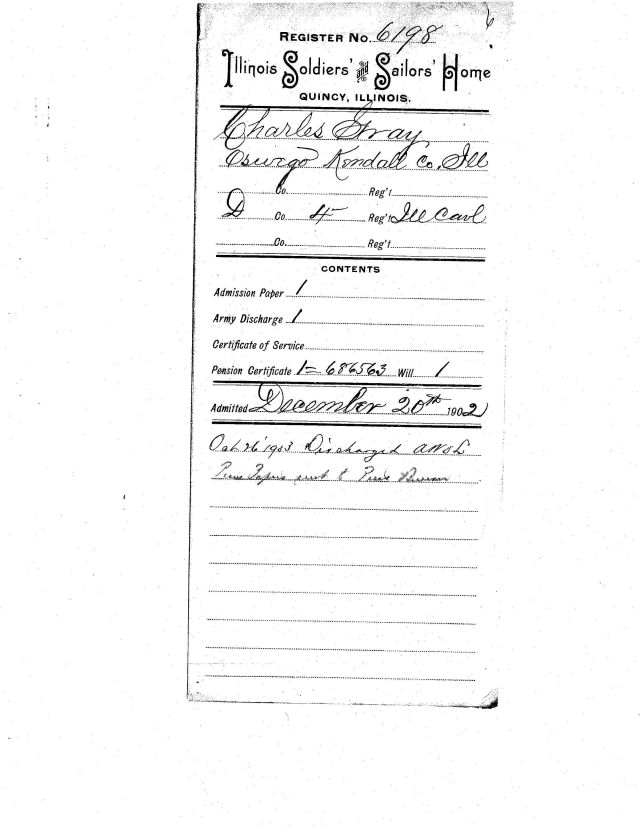 6
REGISTER No. 6198
Illinois Soldiers' and Sailors' Home
QUINCY, ILLINOIS.
Charles Gray
Oswego Kendall Co. Ill
Co. Reg't
D Co. 4 Reg't Ill Cavl
Co. Reg't
CONTENTS
Admission Paper 1
Army Discharge 1
Certificate of Service
Pension Certificate 1 = 686563 Will 1
Admitted December 20th 1902
Oct 26 1903 Discharged AWOL
Papers sent to Bureau